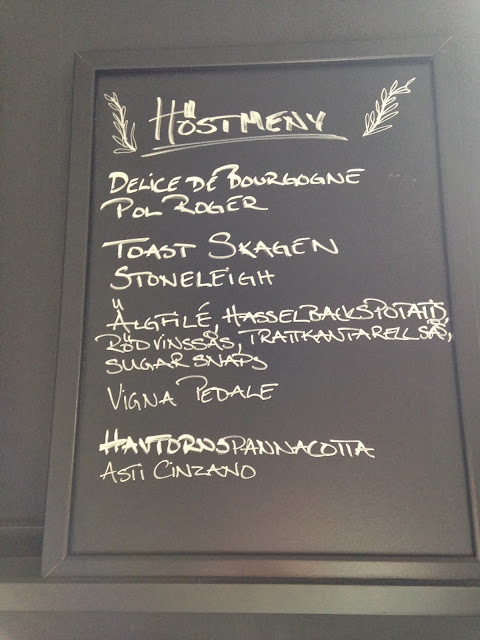 HÖSTMENY
DELICE DE BOURGOGNE
POL ROGER
TOAST SKAGEN
STONELEIGH
ÄLGFILÉ, HASSELBACKSPOTATIS,
RÖDVINSSÅS, TRATTKANTARELLSÅS,
SUGARSNAPS
VIGNA PEDALE
HAVTORNSPANNACOTTA
ASTI CINZANO